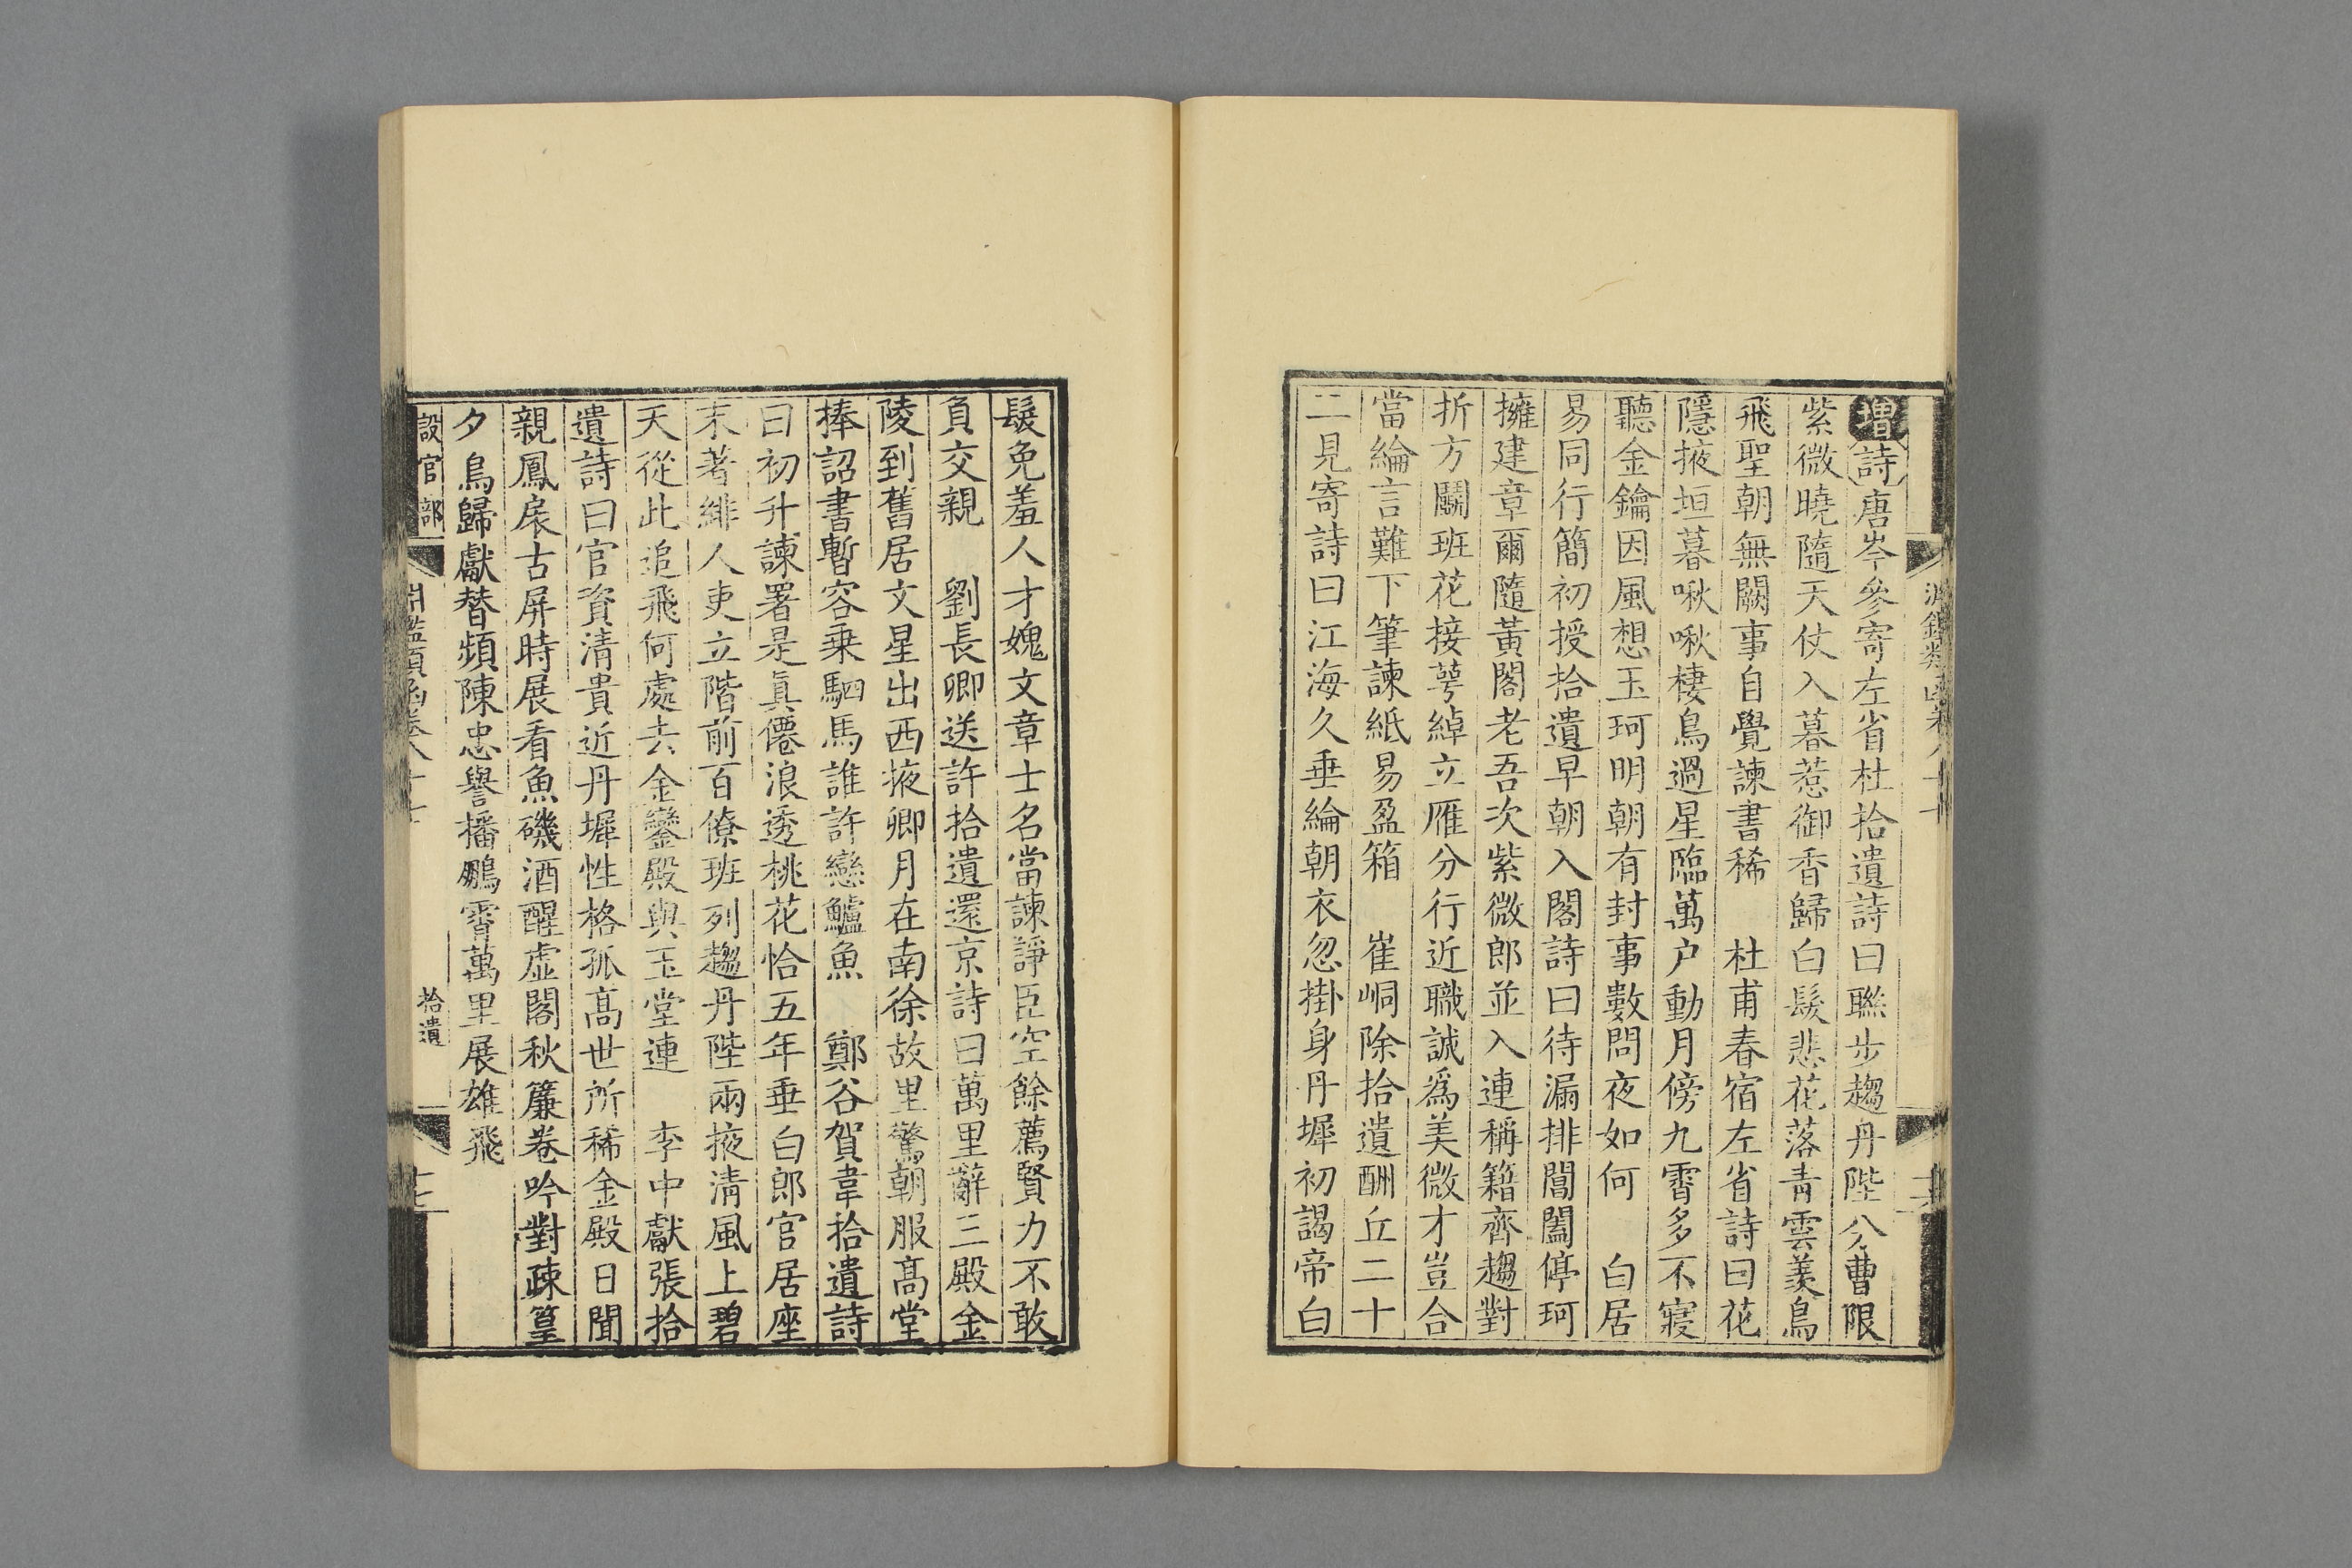 增詩唐岑參寄左省杜拾遺詩曰聮步趨丹陛分曹限
紫微曉隨天仗入暮惹御香歸白髮悲花落青雲羡鳥
飛聖朝無闕事自覺諫書稀　杜甫春宿左省詩曰花
隱掖垣暮啾啾棲鳥過星臨萬户動月傍九霄多不寢
聽金鑰因風想玉珂明朝有封事數問夜如何　白居
易同行簡初授拾遺早朝入閣詩曰待漏排閶闔停珂
擁建章爾隨黃閣老吾次紫微郎並入連稱籍齊趨對
折方鬬班花接萼綽立雁分行近職誠爲美微才豈合
當綸言難下筆諫紙易盈箱　崔峒除拾遺酬丘二十
二見寄詩曰江海久垂綸朝衣忽掛身丹墀初謁帝白
髮免羞人才媿文章士名當諫諍臣空餘薦賢力不敢
負交親　劉長卿送許拾遺還京詩曰萬里辭三殿金
陵到舊居文星出西掖卿月在南徐故里驚朝服髙堂
捧詔書暫容乗駟馬誰許戀鱸魚　鄭谷賀韋拾遺詩
曰初升諫署是眞僊浪透桃花恰五年垂白郎官居座
末著緋人吏立階前百僚班列趨丹陛兩掖淸風上碧
天從此追飛何處去金鑾殿與玉堂連　李中獻張拾
遺詩曰官資清貴近丹墀性格孤髙世所稀金殿日聞
親鳳扆古屏時展看魚磯酒醒虛閣秋簾卷吟對疎篁
夕鳥歸獻替頻陳忠譽播鵬霄萬里展雄飛
設官部
拾遺
十七